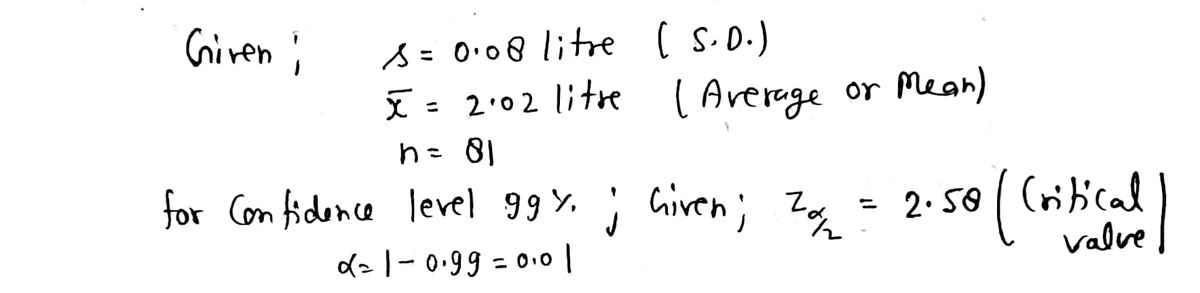 Given ; s = 0.08 litre ( S.D.)
x̄ = 2.02 litre ( Average or Mean)
n = 81
for Confidence level 99 %. ; Given ; Zα/2 = 2.58 ( Critical value )
α = 1 - 0.99 = 0.01